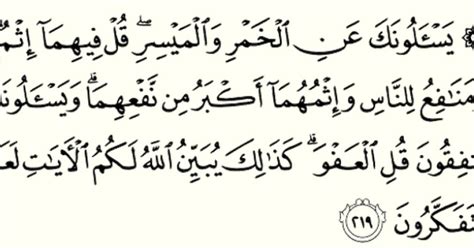 يَسْـَٔلُونَكَ عَنِ ٱلْخَمْرِ وَٱلْمَيْسِرِ ۖ قُلْ فِيهِمَآ إِثْمٌ
مَنَٰفِعُ لِلنَّاسِ وَإِثْمُهُمَآ أَكْبَرُ مِن نَّفْعِهِمَا ۗ وَيَسْـَٔلُونَ
نفِقُونَ قُلِ ٱلْعَفْوَ ۗ كَذَٰلِكَ يُبَيِّنُ ٱللَّهُ لَكُمُ ٱلْءَايَٰتِ لَعَ
تَتَفَكَّرُونَ ٢١٩